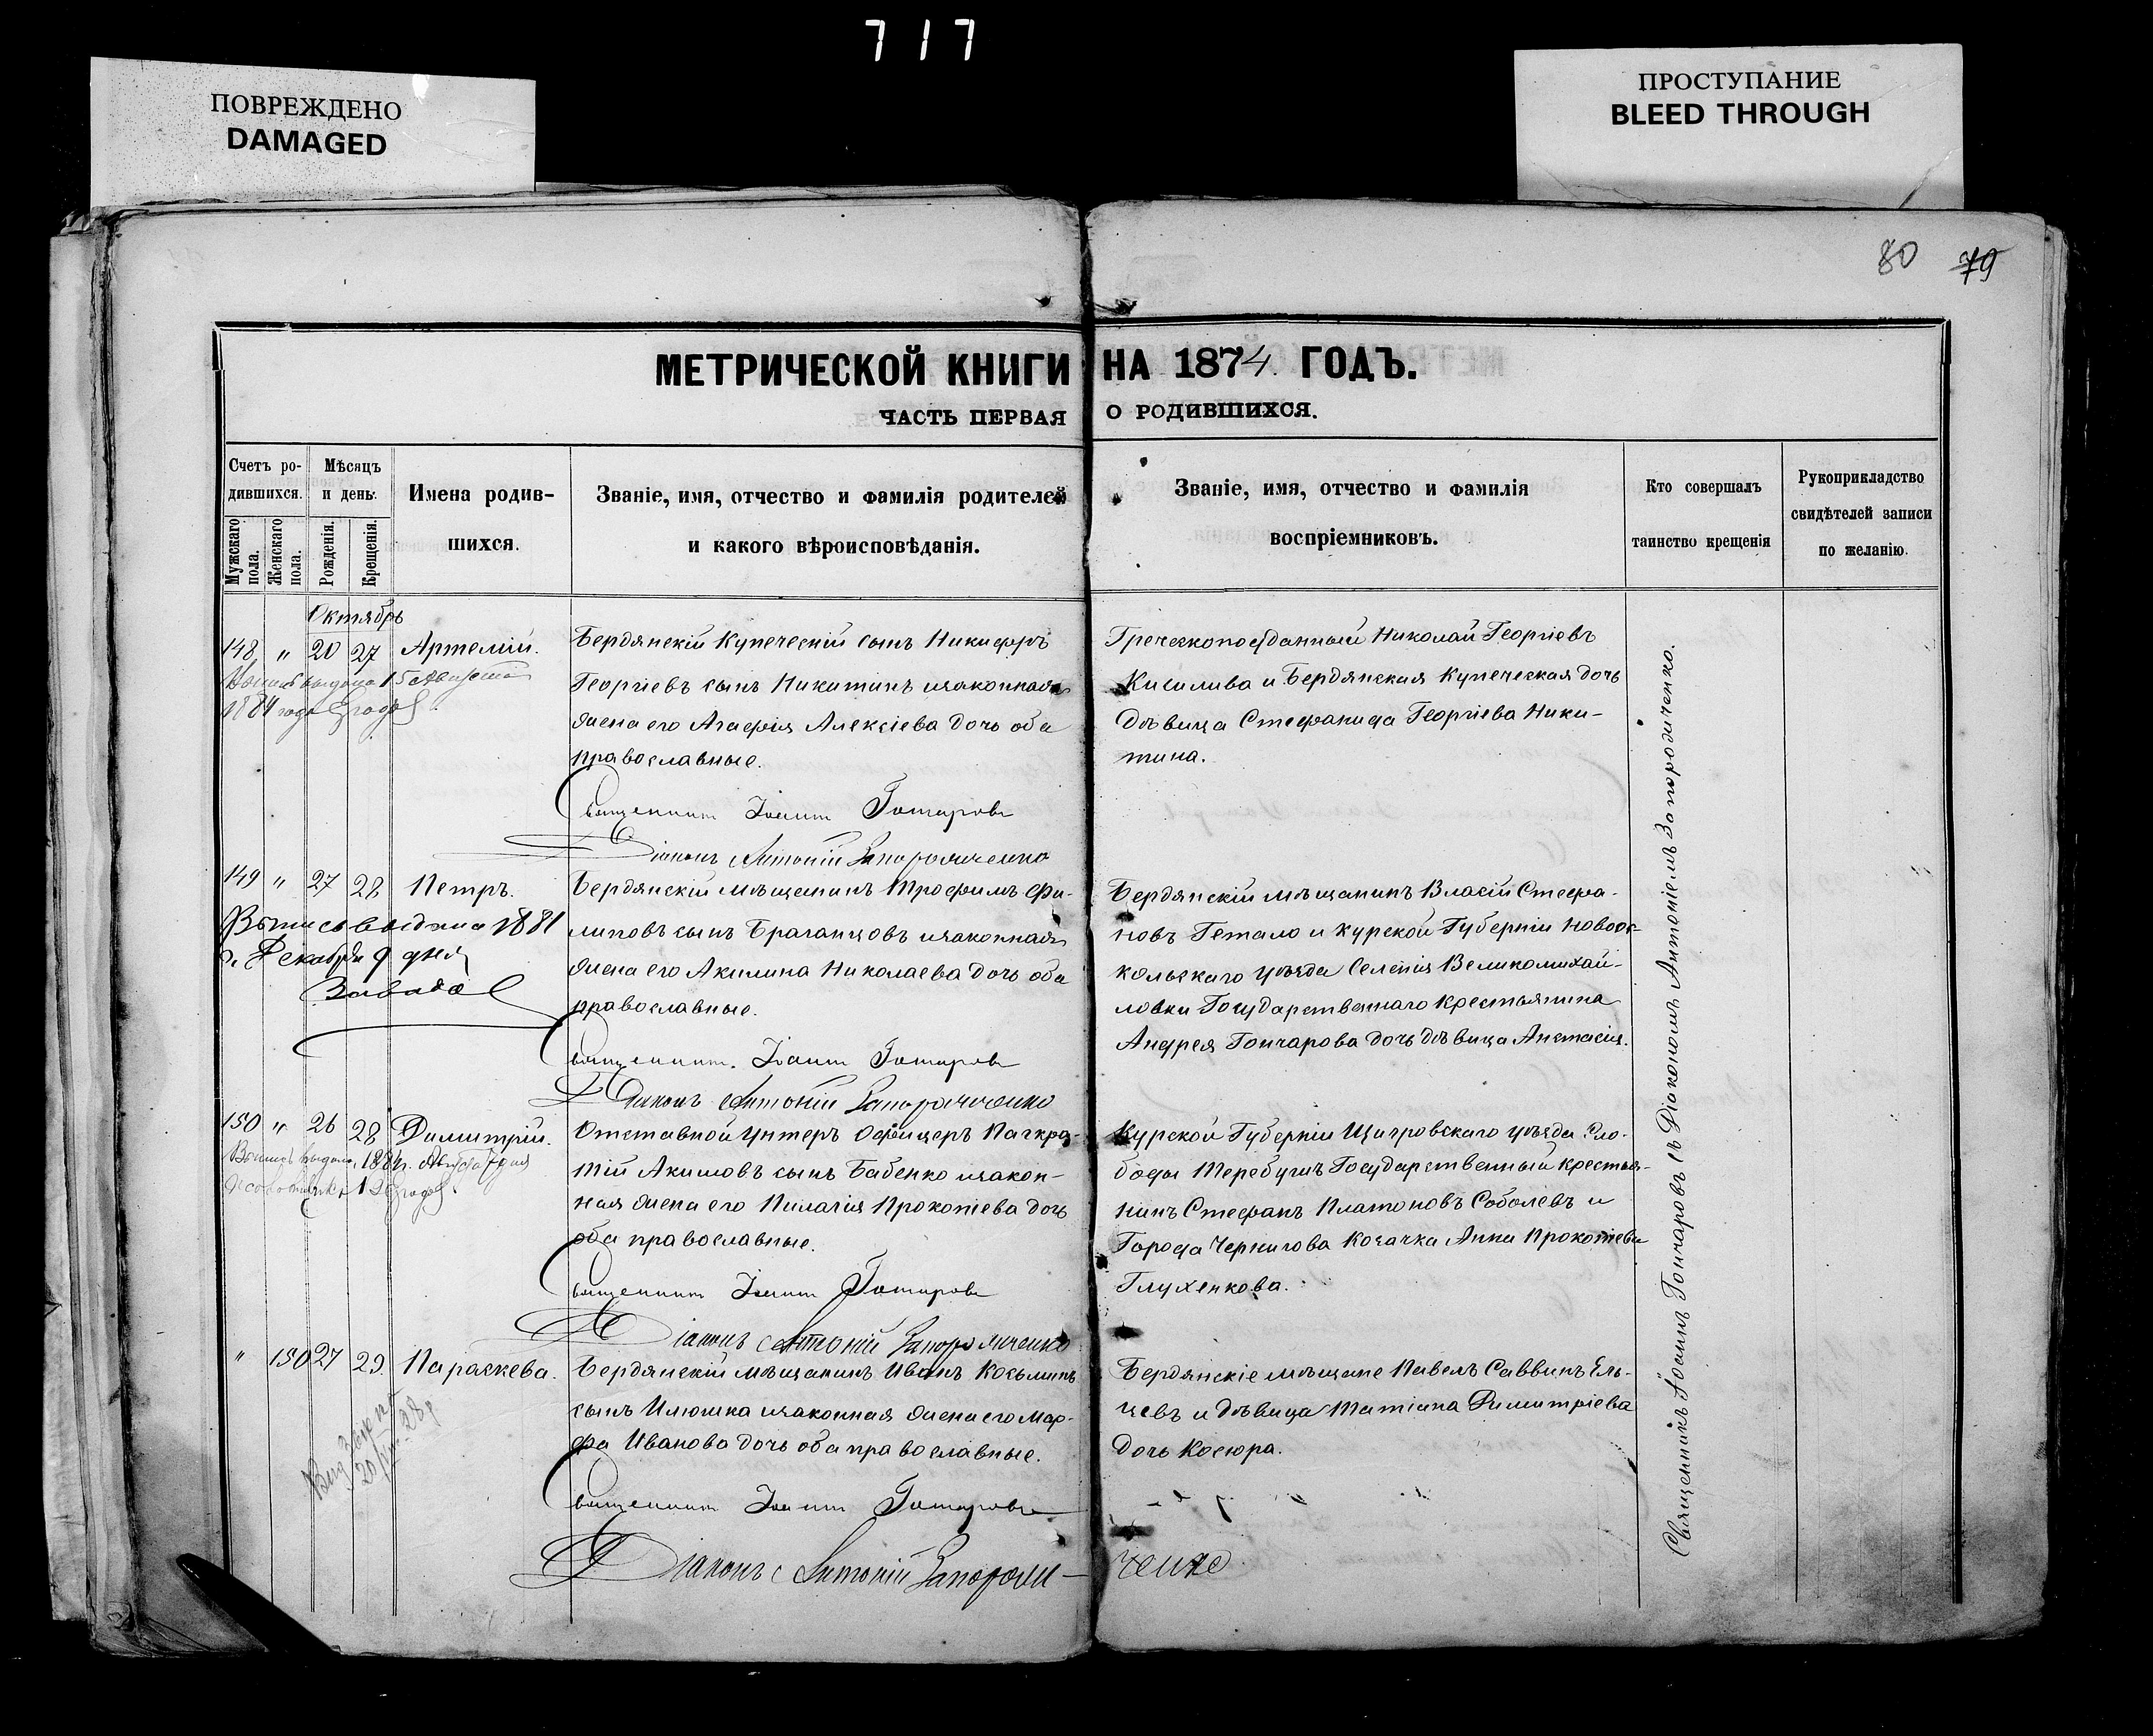 717
ПОВРЕЖДЕНО
DAMAGED
ПРОСТУПАНИЕ
BLEED THROUGH
80 79
МЕТРИЧЕСКОЙ КНИГИ НА 1874 ГОДЪ.
ЧАСТЬ ПЕРВАЯ О РОДИВШИХСЯ.
Счетъ ро-
дившихся.
Мужскаго пола.
Женскаго пола.
Мѣсяцъ
и день.
Рожденія.
Крещенія.
Имена родив-
шихся.
Званіе, имя, отчество и фамилія родителей
и какого вѣроисповѣданія.
Званіе, имя, отчество и фамилія
воспріемниковъ.
Кто совершалъ
таинство крещенія
Рукоприкладство
свидѣтелей записи
по желанію.
Октябрь
148 " 20 27 Артемій.
выдана 15 Августа
1884 года
Бердянскій Купеческій сынъ Никифръ
Георгіевъ сынъ Никитинъ изаконная
жена его Агафія Алексіева дочь оба
православные.
Священникъ Іоаннъ Гончаровъ
Діаконъ Антоній Запорожченко
Греческоподданный Николай Георгіевъ
Кисилива и Бердянская Купеческая дочь
дѣвица Стефанида Георгіева Ники-
тина.
149 " 27 28 Петръ.
Выпись выдана 1881
г. Декабря 9 дня
Бердянскій мѣщанинъ Трофимъ Фи-
липовъ сынъ Браганцовъ изаконная
жена его Акилина Николаева дочь оба
православные.
Священникъ Іоаннъ Гончаровъ
Діаконъ Антоній Запорожченко
Бердянскій мѣщанинъ Власій Стефа-
новъ Гетало и Курской Губерніи Новоос-
кольскаго уѣзда Селенія Великомихай-
ловки Государственнаго Крестьянина
Андрея Гончарова дочь дѣвица Анстасія.
150 " 26 28 Димитрій.
Выпись выдана 1884 г. Августа 7 дня
Отставной Унтеръ Офицеръ Панкра-
тій Акимовъ сынъ Бабенко изакон-
ная жена его Пилагія Прокопіева дочь
оба православные.
Священникъ Іоаннъ Гончаровъ
Діаконъ Антоній Запорожченко
Курской Губерніи Щигровскаго уѣзда Сло-
боды Теребушъ Государственный крестья-
нинъ Стефанъ Платоновъ Соболевъ и
Города Чернигова Козачка Анна Прокопіева
Глухенкова.
" 150 27 29. Параскева.
Бердянскій мѣщанинъ Иванъ Козьминъ
сынъ Илюшка изаконная жена его Мар-
фа Иванова дочь оба православные.
Священникъ Іоаннъ Гончаровъ
Діаконъ Антоній Запорож-ченко
Бердянскіе мѣщане Павелъ Саввинъ Ель-
цевъ и дѣвица Татіана Димитріева
дочь Косюра.
Священникъ Іоаннъ Гончаровъ съ Діакономъ Антоніемъ Запорожченко.